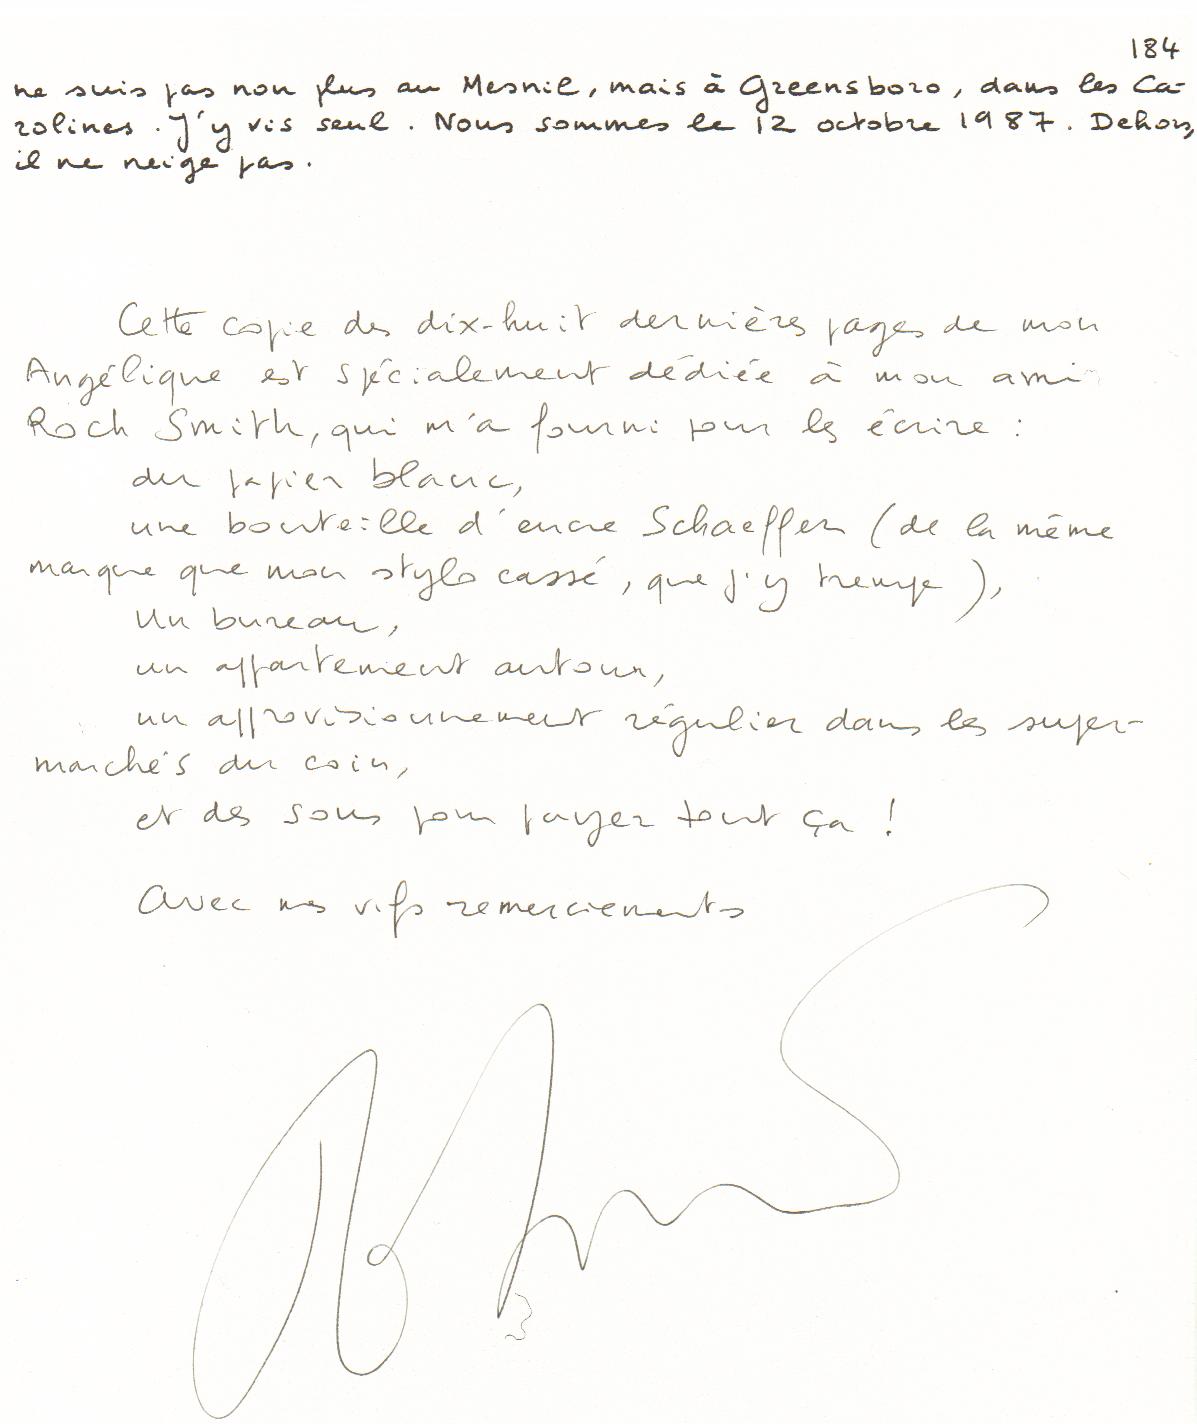 184
ne suis pas non plus au Mesnil, mais à Greensboro, dans les Ca-
rolines. J'y vis seul. Nous sommes le 12 octobre 1987. Dehors,
il ne neige pas.
Cette copie des dix-huit dernières pages de mon
Angélique est spécialement dédiée à mon ami
Roch Smith, qui m'a fourni pour les écrire :
du papier blanc,
une bouteille d'encre Schaeffer (de la même
marque que mon stylo cassé, que j'y trempe),
Un bureau,
un appartement autour,
un approvisionnement régulier dans les super-
marchés du coin,
et des sous pour payer tout ça !
Avec mes vifs remerciements